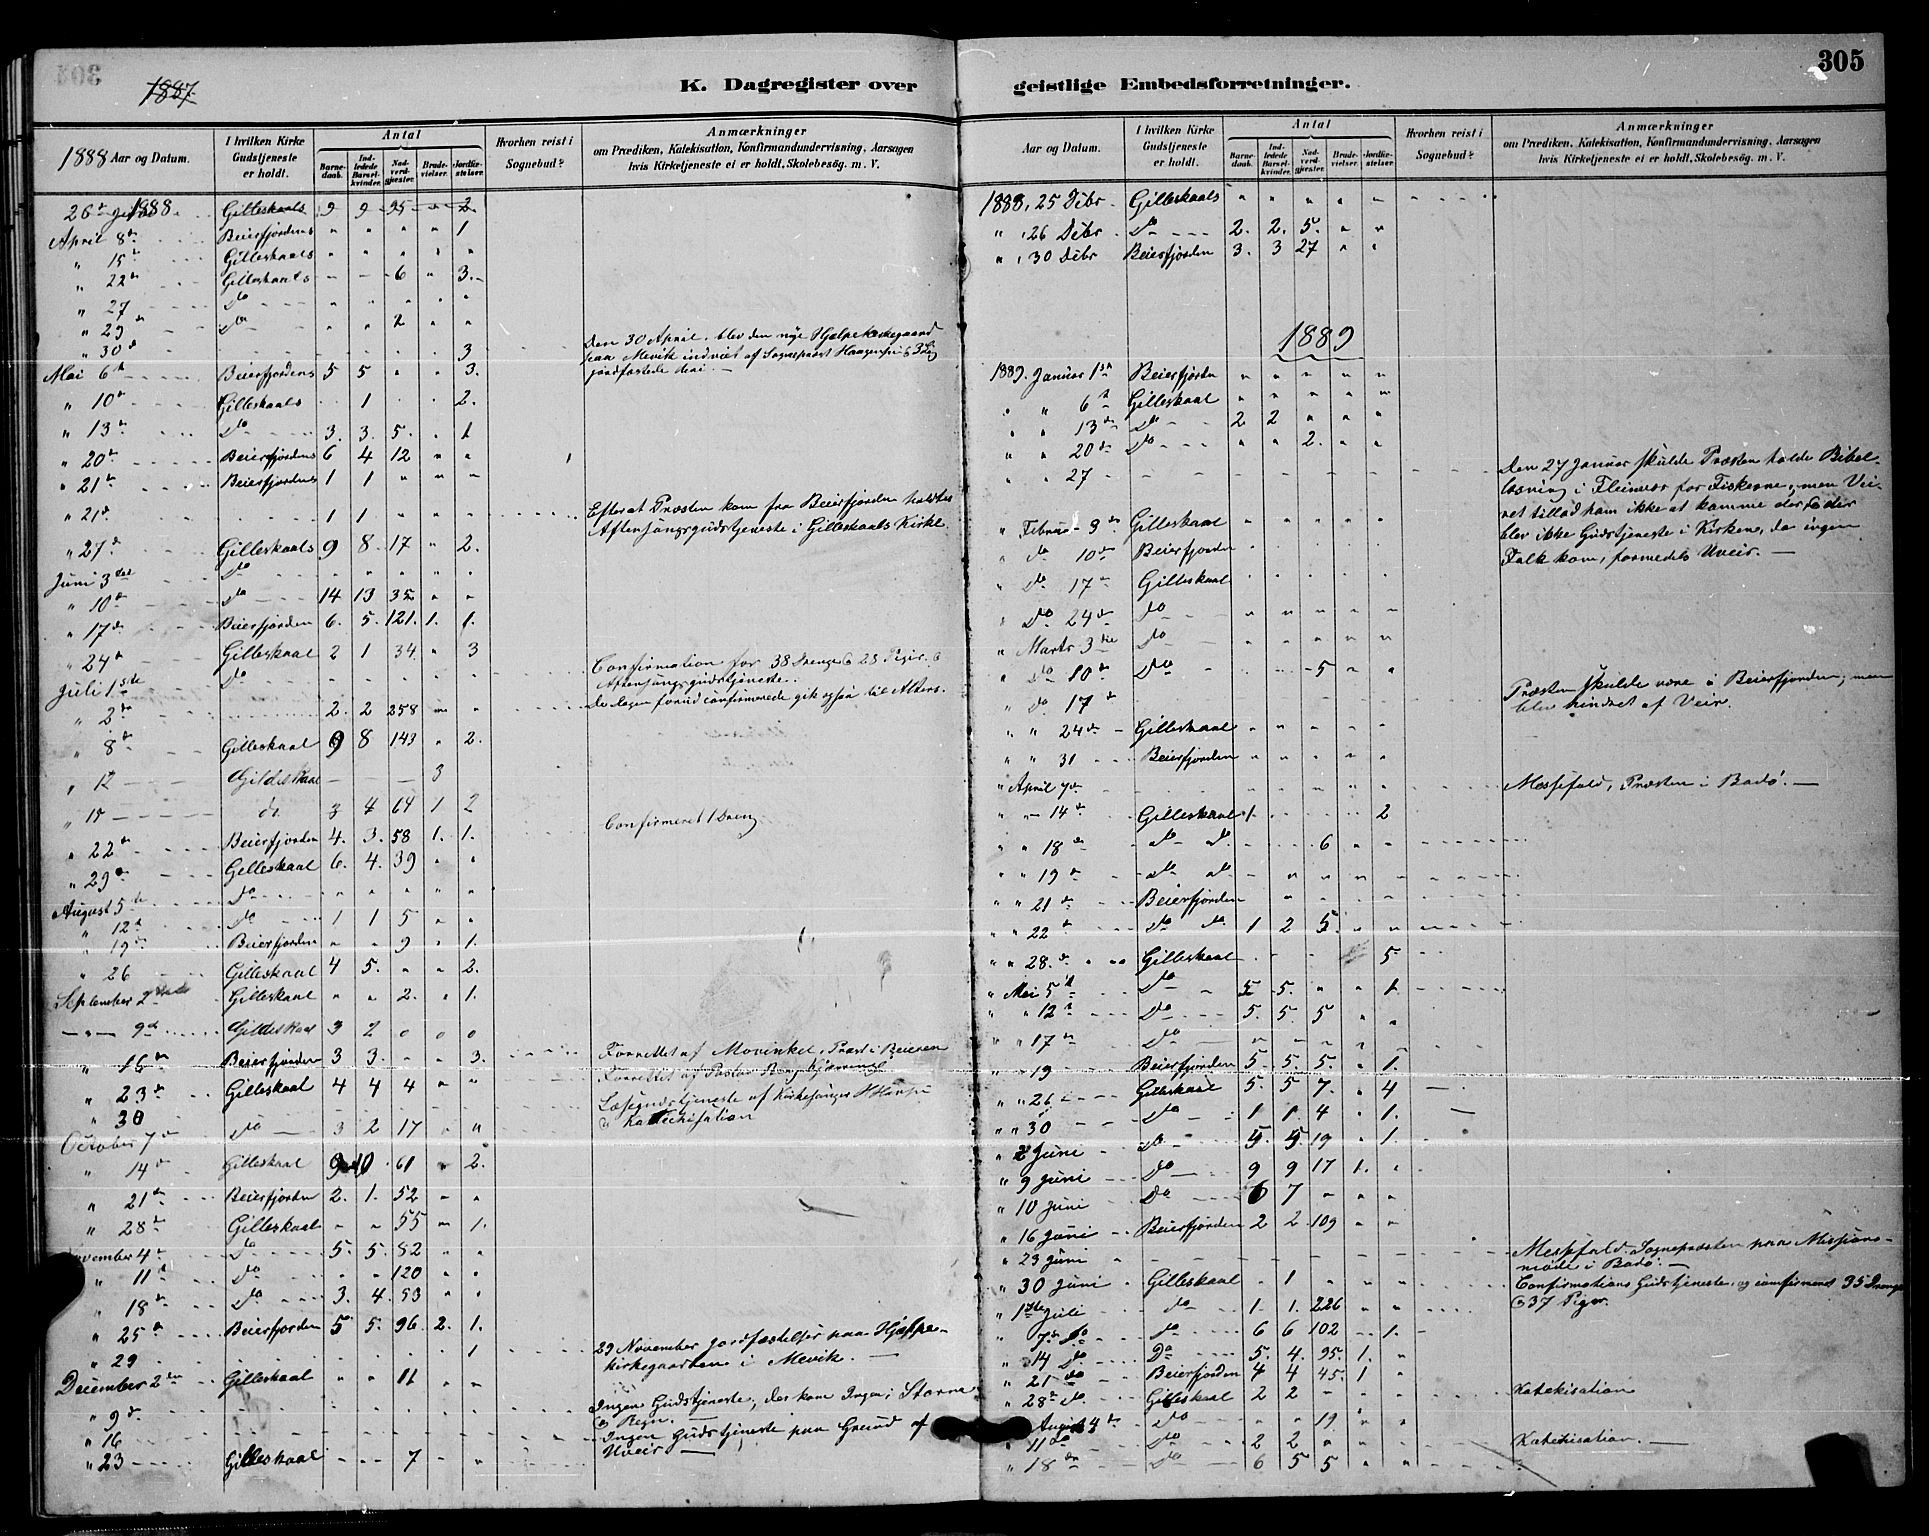 305
1887.
K. Dagregister over geistlige Embedsforretninger.
1888 Aar og Datum.
I hvilken Kirke Gudstjeneste er holdt.
Antal
Barnedaab.
Indledede Barselkvinder.
Nadverdgjester.
Brudevielser.
Jordfæstelser.
Hvorhen reist i Sognebud?
Anmærkninger
om Prædiken, Katekisation, Konfirmandundervisning, Aarsagen
hvis Kirketjeneste ei er holdt, Skolebesøg. m. V.
1888 Gilleskaals 9 9 95 " 2
April 8de Beierfjordens " " " " 1
" 15 Gilleskaals " " " " "
" 22de Gilleskaals - - 6 " 3.
" 27 do " " " " "
" 29 do " " 2 " "
" 30 3 Den 30 April blev den nye Hjælpekirkegaard
paa Mevik indviet af Sogneprest
jordfæstede deri. —
Mai 6te Beierfjordens 5 5 " " 3.
" 10de Gilleskaals . 1 . . 2.
" 13de do 3. 3. 5. " 1
" 20de Beierfjordens 6 4 12 " "
" 21de Beierfjordens 1 1 " " "
" 21de 1 1 " " " Efterat Præsten kom fra Beierfjorden holdtes
Aftensangsgudstjeneste i Gilleskaals Kirke.
" 27de Gilleskaals 9 8 17 " 2.
Juni 3die do " " " " "
" 10de do 14 13 35 " "
" 17de Beierfjorden 6. 5. 121. 1. 1.
" 24de Gilleskaal 2 1 34 " 3
Juli 1ste do Confirmation for 38 Drenge & 28 Piger. &
Aftensangsgudstjeneste.
" 2de 2. 2 258 " " De dagen forud confirmerede gik ogsaa til Alters.
" 8de Gilleskaal 9 8 143 " 2.
" 12 Gildeskaal — — — 3
" 15 do 3 4 64 1 2 Confirmeret 1 Dreng
" 22de Beierfjorden 4. 3. 58 1. 1.
" 29de Gilleskaal 6. 4. 39 " "
August 5te do " " " " "
" 12te do 1 1 5 " "
" 19de Beierfjorden " " 9 " 1.
" 26 Gilleskaal 4 5. " " 2.
September 2den Gilleskaal " " 2. " 1.
— " — 9de Gildeskaal 3 2 0 0 0
" 16de Beierfjorden 3 3. " " 3. Forrettet af Movinkel, Præst i Beieren
" 23de Gilleskaal 4 4 4 " " Forrettet af Pastor
" 30 Læsegudstjeneste af Kirkesanger H Hansen
& Katechisation
October 7de do 3 2 17 " "
" 14de Gilleskaal 9 10 61 " 2.
" 21de Beierfjorden 2. 1. 52 " "
" 28de Gilleskaal " " 55 " 1.
November 4de do 5. 5. 82 " "
" 11te do " " 120 " "
" 18de do 3. 4. 53 " "
" 25de Beierfjorden 5 5. 96. 2. 1.
" 29 1 29 November Jordfæstelser paa Hjælpe-
kirkegaarden i Mevik. —
December 2den Gilleskaal " " 11 " "
" 9de Ingen Gudstjeneste, der kom Ingen; Storm
& Regn. —
" 16 Ingen Gudstjeneste paa Grund af
Uveir —
" 23 Gilleskaal - - 7 - "
Aar og Datum.
I hvilken Kirke Gudstjeneste er holdt.
Antal
Barnedaab.
Indledede Barselkvinder.
Nadverdgjester.
Brudevielser.
Jordfæstelser.
Hvorhen reist i Sognebud?
Anmærkninger
om Prædiken, Katekisation, Konfirmandundervisning, Aarsagen
hvis Kirketjeneste ei er holdt, Skolebesøg. m. V.
1888, 25 Decbr. Gilleskaals " " " " "
" 26 Decbr do 2. 2. 5. " "
" 30 Decbr Beierfjorden 3. 3 27 " "
1889
1889. Januar 1ste Beierfjorden " " " " "
" " 6te Gilleskaal " " " " "
" " 13de do 2 2 " " "
" " 20de do " " 2. " "
" " 27 Den 27 Januar skulde Præsten holde Bibel-
læsning i Fleinvær for Fiskerne, men Vei-
ret tillod ham ikke at komme der & der
blev ikke Gudstjeneste i Kirken, da ingen
Folk kom, formedels Uveir. —
" Februar 3de Gilleskaal " " " " "
" do 10de Beierfjorden
" do 17de Gilleskaal
" do 24de do " " " " "
" Marts 3die do " " " " "
" do 10de do 5 " "
" do 17de Præsten skulde være i Beierfjorden, men
blev hindret af Veir.
" " 24de Gilleskaal " " " " "
" " 31 Beierfjorden " " " " "
" April 7de Messefald, Præsten i Bodø. —
" " 14de Gilleskaal 1 2
" " 18de do do 6 " "
" " 19de do do " " " "
" " 21de Beierfjorden
" " 22de do do 1 2 5. " "
" " 28de Gilleskaal 5
" Mai 5te do 5 5. " " 1.
" " 12te do 5. 5. 5 " "
" " 17de do " " " " "
" " 19 Beierfjorden 5. 5. 5. " 1.
" " 26 Gilleskaal 5. 5 7. " 4
" " 30 do 1 1. 4 " 1.
" 2 Juni do 5. 5. 19 " 1.
" 9 Juni do 9 9 17 1. "
" 10 Juni do 6 7 " " "
" 16 Juni Beierfjorden 2 2 109 " "
" 23 Juni Messefald. Sognepræsten paa Missions-
møde i Bodø. —
" 30 Juni Gilleskaal " 1 " " " Confirmations Gudstjeneste, og confirmeret 35 Drenge
& 37 Piger.
" 1ste Juli do 1. 1. 226 " "
" 7de do do 6 6 102 " 1.
" 14 do do 5. 4. 95. 1. "
" 21 do Beierfjorden 4 4 45. 1 "
" 28de do Gilleskaal 2 2 " " " Katekisation
August 4de do " " 19 " "
" 11te do 2 2 " " " Katekisation. —
" 18de do 6 5 5 " "